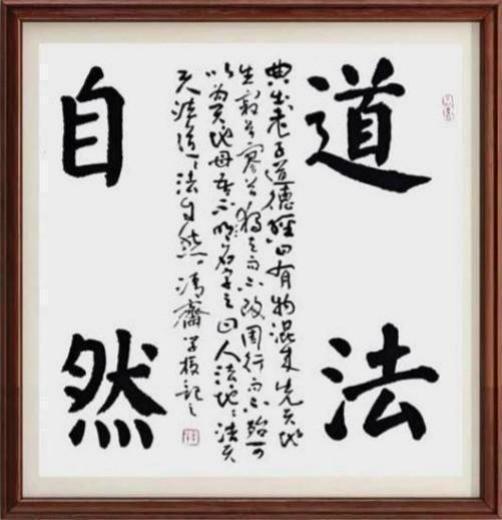 道法
典出老子道德經曰有物混成先天地
生寂兮寥兮独立而不改周行而不殆可
以為天地母吾不知名字之曰人法地〻法天
天法道〻法自然
記之
自然